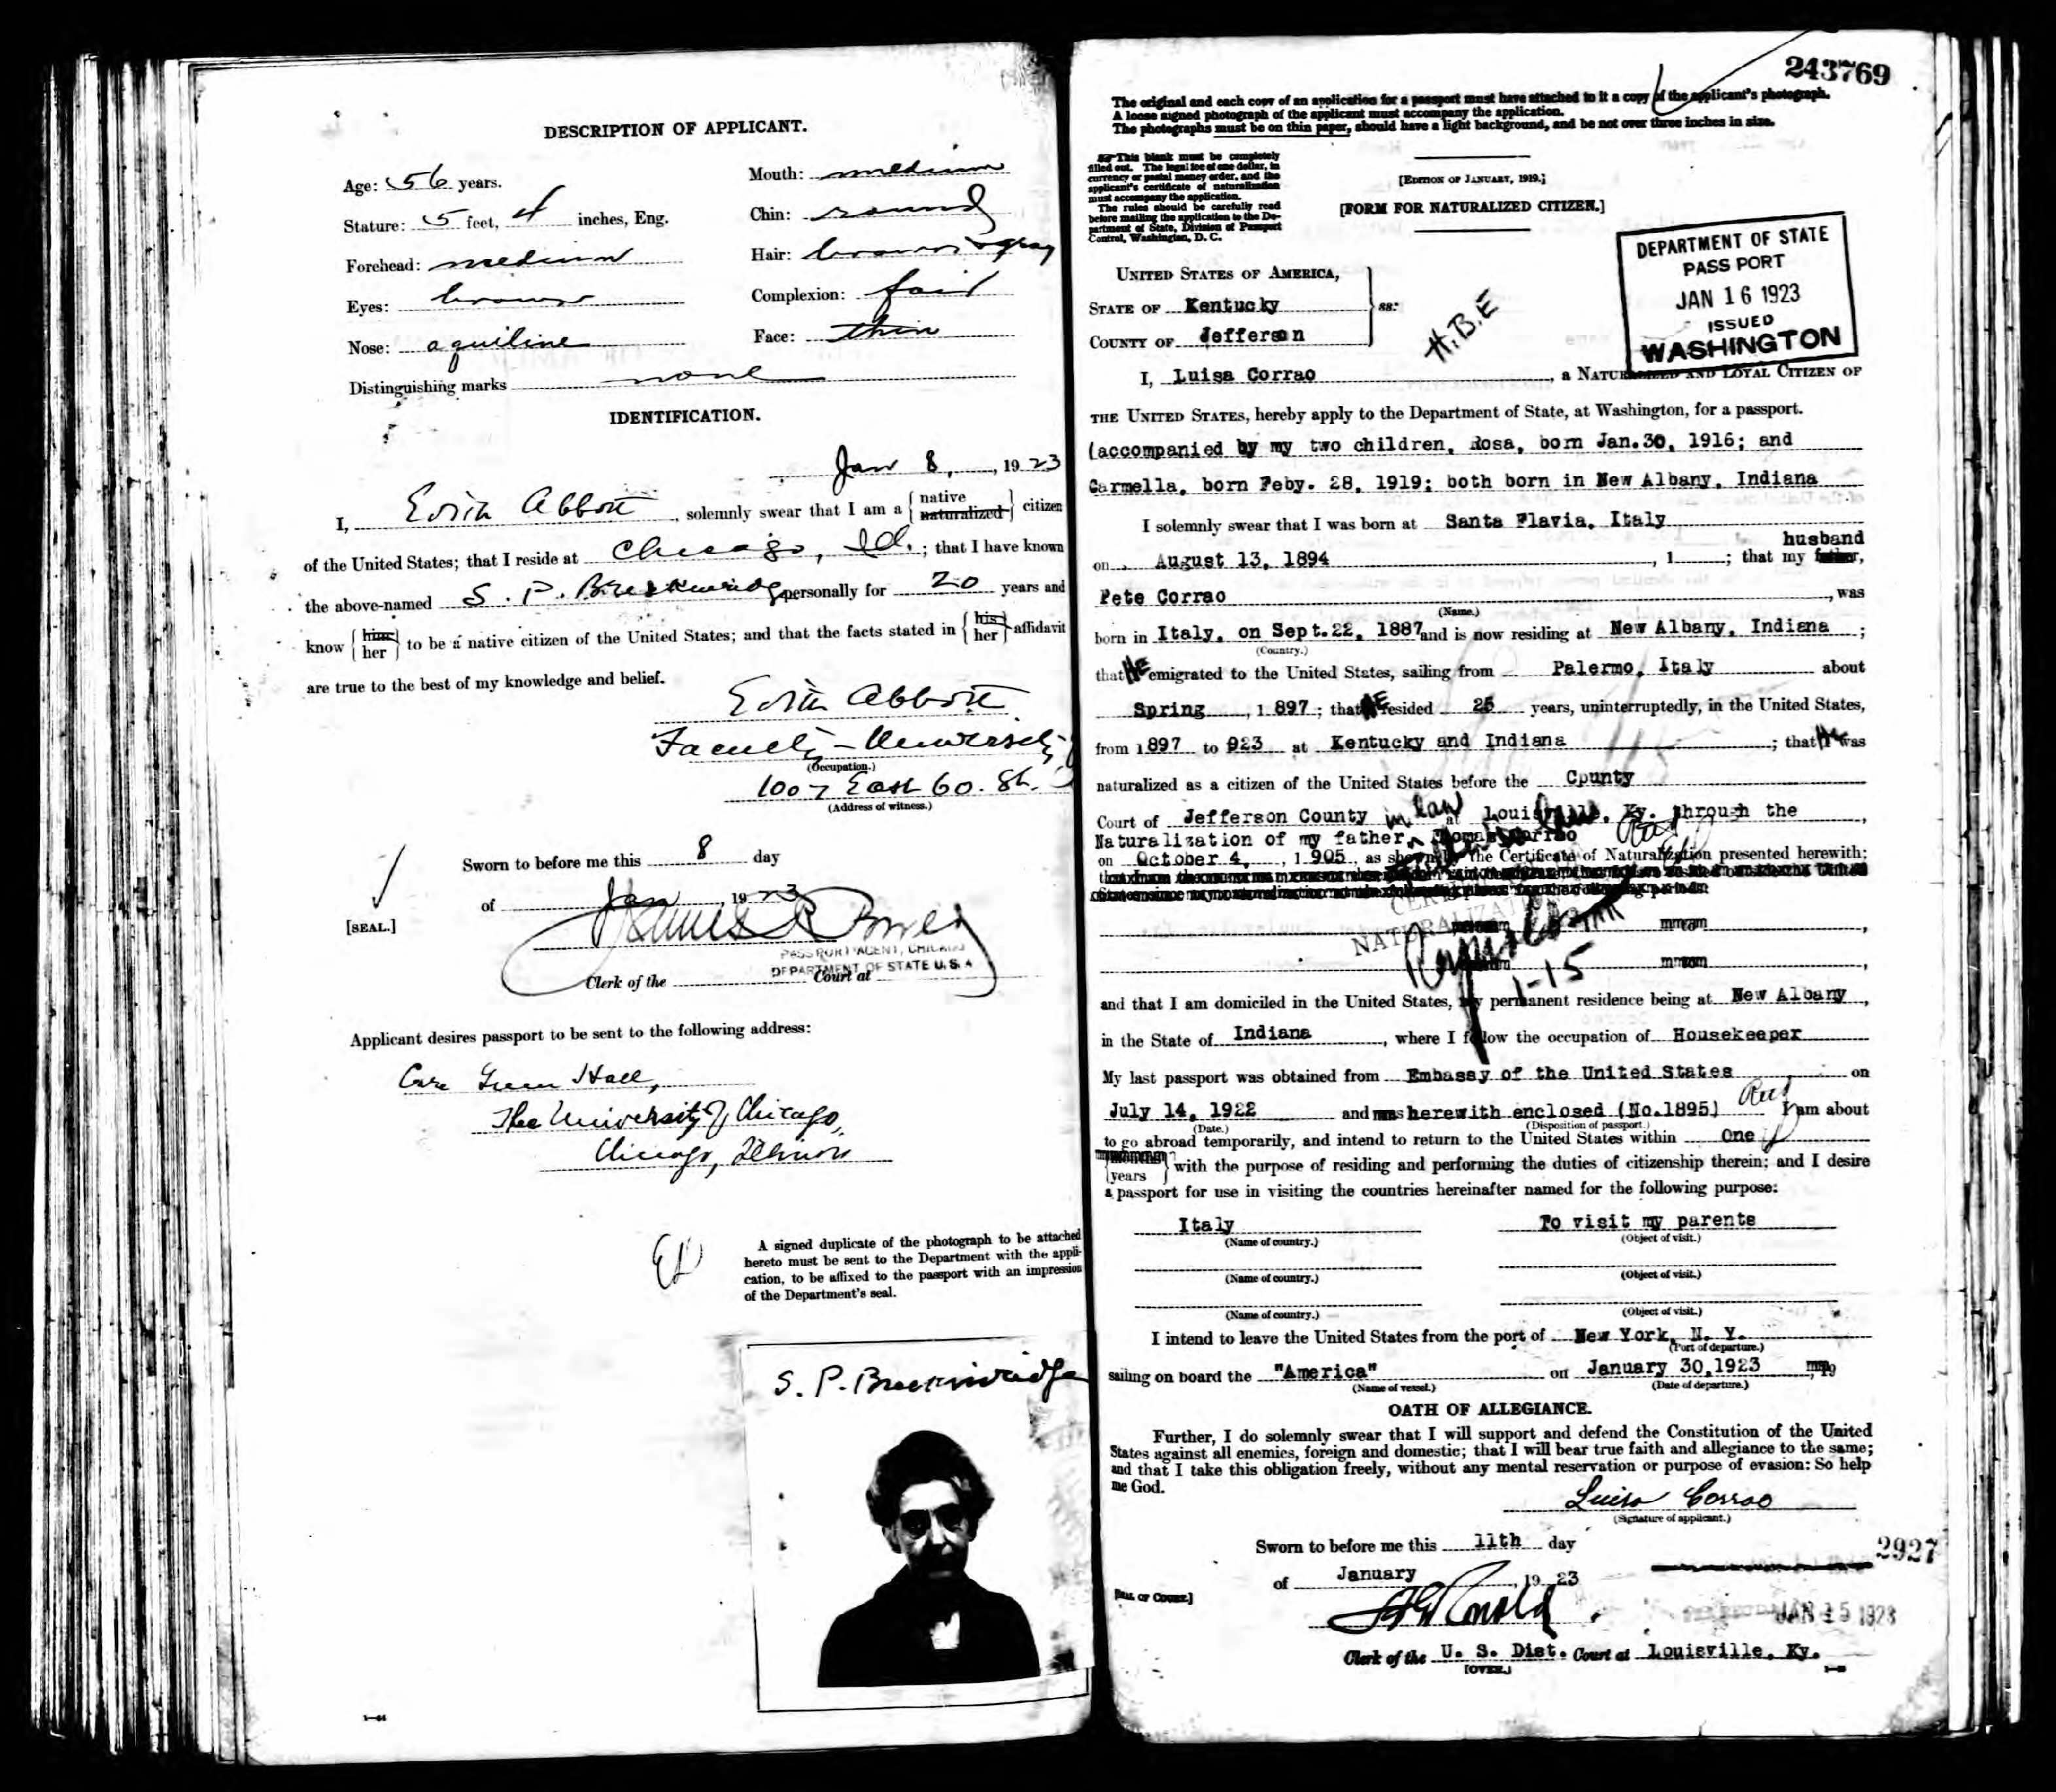 DESCRIPTION OF APPLICANT.
Age: 56 years.
Mouth: medium
Stature: 5 feet, 4 inches, Eng.
Chin: round
Forehead: medium
Hair: brown & gray
Eyes: brown
Complexion: fair
Nose: aquiline
Face: thin
Distinguishing marks none
IDENTIFICATION.
Jan 8, 1923
I, Edith Abbott, solemnly swear that I am a { native naturalized } citizen
of the United States; that I reside at Chicago, Ill.; that I have known
the above-named S. P. Breckinridge personally for 20 years and
know { him her } to be a native citizen of the United States; and that the facts stated in { his her } affidavit
are true to the best of my knowledge and belief.
Edith Abbott
Faculty - University
(Occupation.)
1007 East 60. St.
(Address of witness.)
Sworn to before me this 8 day
of Jan, 1923
[SEAL.]
PASSPORT AGENT, CHICAGO
DEPARTMENT OF STATE U. S. A
Clerk of the Court at
Applicant desires passport to be sent to the following address:
Care Green Hall,
The University of Chicago,
Chicago, Illinois
A signed duplicate of the photograph to be attached
hereto must be sent to the Department with the appli-
cation, to be affixed to the passport with an impression
of the Department's seal.
S. P. Breckinridge
243769
The original and each copy of an application for a passport must have attached to it a copy of the applicant's photograph.
A loose signed photograph of the applicant must accompany the application.
The photographs must be on thin paper, should have a light background, and be not over three inches in size.
This blank must be completely
filled out. The legal fee of one dollar, in
currency or postal money order, and the
applicant's certificate of naturalization
must accompany the application.
The rules should be carefully read
before mailing the application to the De-
partment of State, Division of Passport
Control, Washington, D. C.
[EDITION OF JANUARY, 1919.]
[FORM FOR NATURALIZED CITIZEN.]
DEPARTMENT OF STATE
PASS PORT
JAN 16 1923
ISSUED
WASHINGTON
UNITED STATES OF AMERICA,
STATE OF Kentucky
ss:
COUNTY OF Jefferson
H.B.E
I, Luisa Corrao, a NATURALIZED AND LOYAL CITIZEN OF
THE UNITED STATES, hereby apply to the Department of State, at Washington, for a passport.
(accompanied by my two children, Rosa, born Jan.30, 1916; and
Carmella, born Feby. 28, 1919; both born in New Albany, Indiana
I solemnly swear that I was born at Santa Flavia, Italy
husband
on August 13, 1894, 1 ; that my father,
Pete Corrao, was
(Name.)
born in Italy, on Sept.22, 1887 and is now residing at New Albany, Indiana;
(Country.)
that He emigrated to the United States, sailing from Palermo, Italy about
Spring, 1897; that HE resided 25 years, uninterruptedly, in the United States,
from 1897 to 923 at Kentucky and Indiana; that He was
naturalized as a citizen of the United States before the County
Court of Jefferson County at Louisville, Ky. through the
in law
Naturalization of my father, Thomas Corrao
on October 4, 1905, as shown by the Certificate of Naturalization presented herewith;
NATURALIZATION
1-15
and that I am domiciled in the United States, my permanent residence being at New Albany,
in the State of Indiana, where I follow the occupation of Housekeeper
My last passport was obtained from Embassy of the United States on
July 14, 1922 and was herewith enclosed (No.1895) I am about
(Date.) (Disposition of passport.)
to go abroad temporarily, and intend to return to the United States within One
{ months years } with the purpose of residing and performing the duties of citizenship therein; and I desire
a passport for use in visiting the countries hereinafter named for the following purpose:
Italy To visit my parents
(Name of country.) (Object of visit.)
(Name of country.) (Object of visit.)
(Name of country.) (Object of visit.)
I intend to leave the United States from the port of New York, N. Y.
(Port of departure.)
sailing on board the "America" on January 30,1923
(Name of vessel.) (Date of departure.)
OATH OF ALLEGIANCE.
Further, I do solemnly swear that I will support and defend the Constitution of the United
States against all enemies, foreign and domestic; that I will bear true faith and allegiance to the same;
and that I take this obligation freely, without any mental reservation or purpose of evasion: So help
me God.
Luisa Corrao
(Signature of applicant.)
Sworn to before me this 11th day
2927
of January, 1923
[SEAL OF COURT.]
JAN 15 1923
Clerk of the U. S. Dist. Court at Louisville, Ky.
[OVER.]